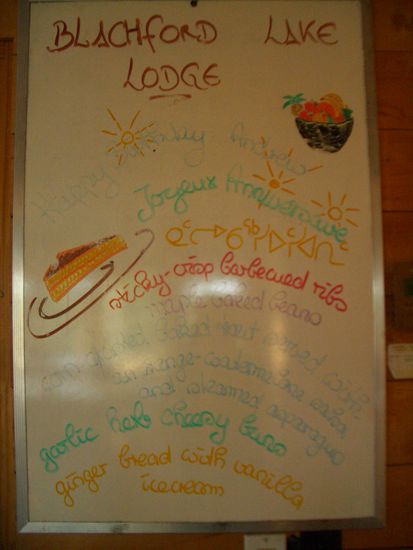 BLACHFORD LAKE
LODGE
Happy Birthday Andrew
Joyeux Anniversaire
sticky-crisp barbecued ribs
maple baked beans
baked trout served with
an
and steamed asparagus
garlic herb cheesy buns
ginger bread with vanilla
icecream